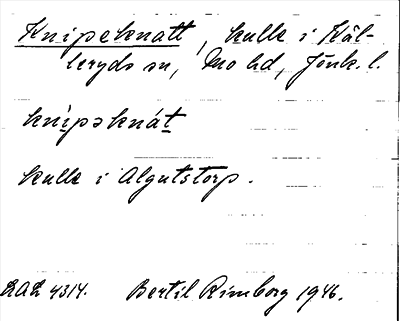 Knipeknatt, kulle i Käl-
leryds sn, Mo hd, Jönk. l.
knìpəknát
kulle i Algutstorp.
LAL 4314. Bertil Rimborg 1946.